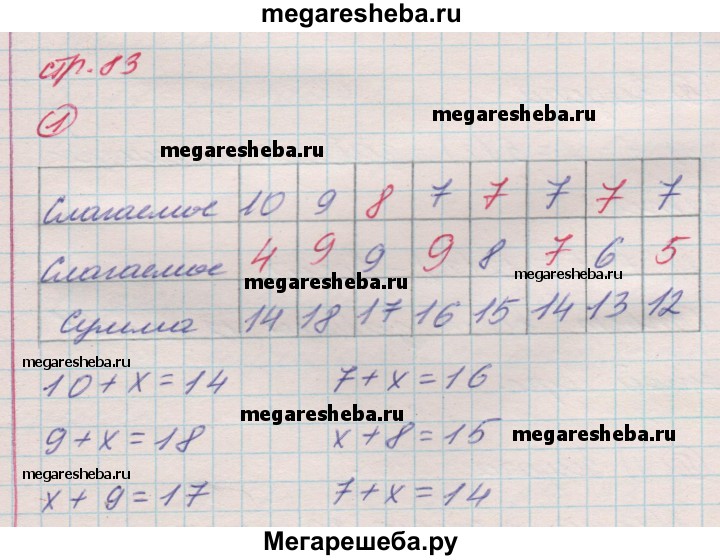 megaresheba.ru
стр. 83
1
megaresheba.ru
megaresheba.ru
Слагаемое 10 9 8 7 7 7 7 7
Слагаемое 4 9 9 9 8 7 6 5
megaresheba.ru
megaresheba.ru
Сумма 14 18 17 16 15 14 13 12
megaresheba.ru
10 + x = 14 7 + x = 16
megaresheba.ru
9 + x = 18 x + 8 = 15
megaresheba.ru
megaresheba.ru
x + 9 = 17 7 + x = 14
Мегарешеба.ру